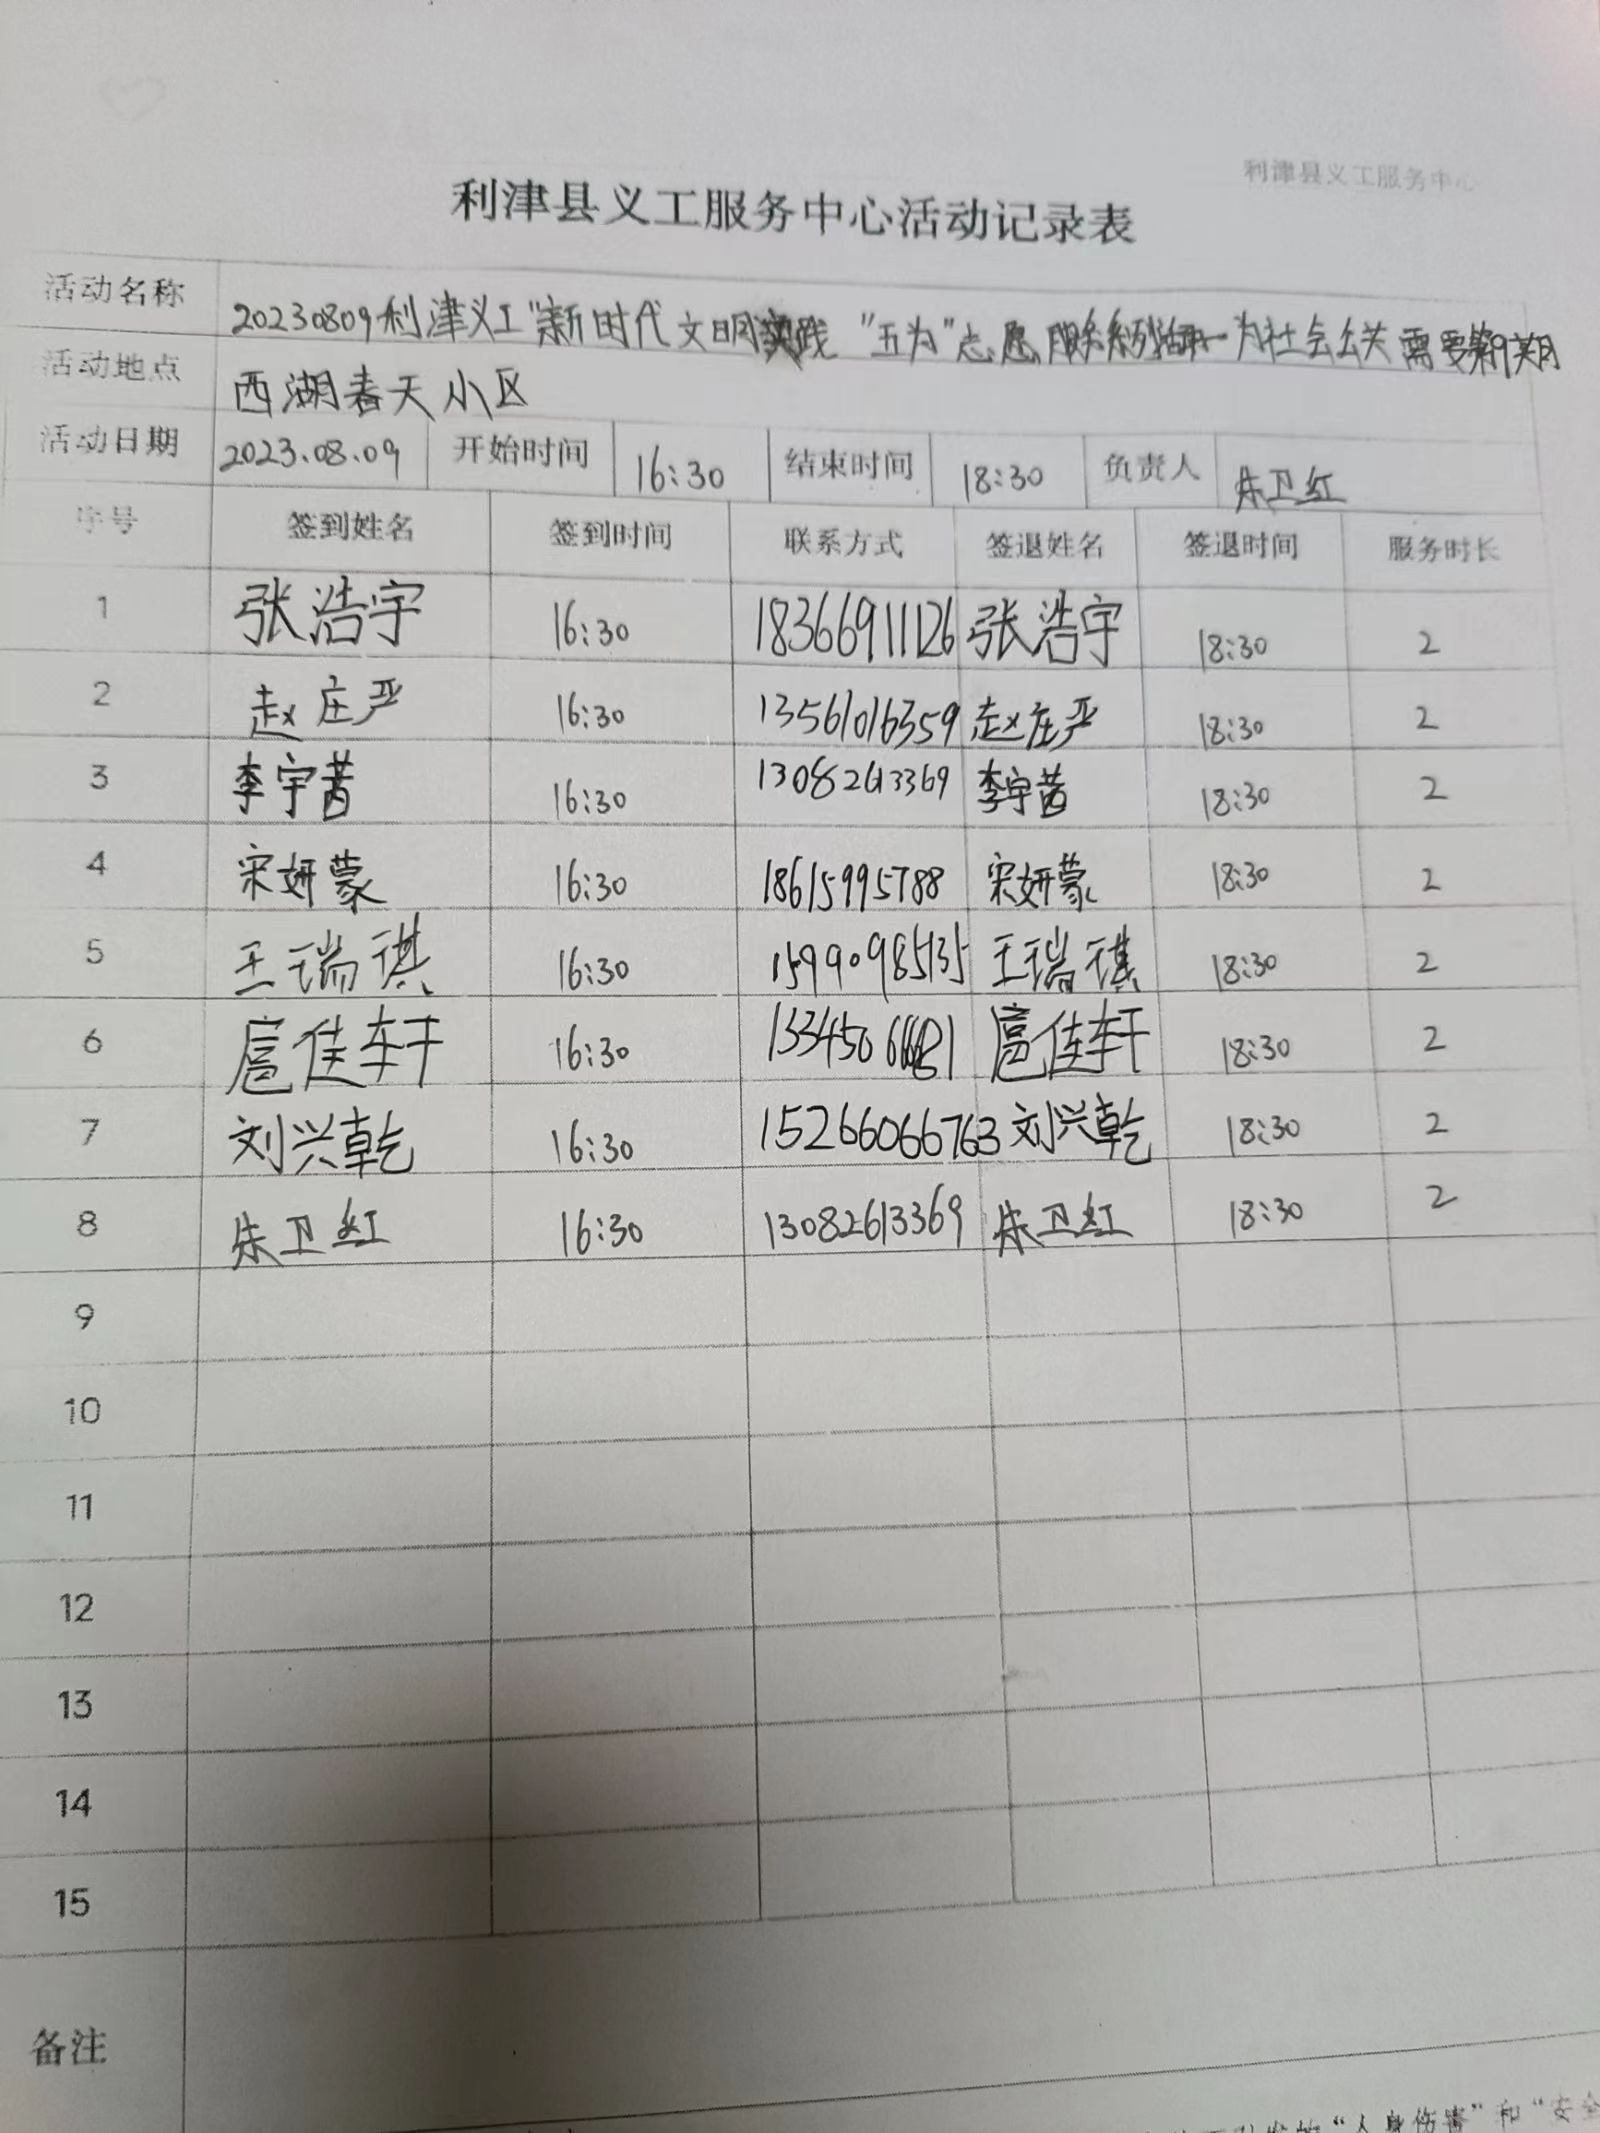 利津县义工服务中心
利津县义工服务中心活动记录表
活动名称 20230809利津义工"新时代文明实践"五为"志愿服务系列活动一为社会公共需要第9期
活动地点 西湖春天小区
活动日期 2023.08.09 开始时间 16:30 结束时间 18:30 负责人 朱卫红
序号 签到姓名 签到时间 联系方式 签退姓名 签退时间 服务时长
1 张浩宇 16:30 18366911126 张浩宇 18:30 2
2 赵庄严 16:30 13561016359 赵庄严 18:30 2
3 李宇茜 16:30 13082613369 李宇茜 18:30 2
4 宋妍蒙 16:30 18615995788 宋妍蒙 18:30 2
5 王瑞琪 16:30 15990985135 王瑞琪 18:30 2
6 扈佳轩 16:30 扈佳轩 18:30 2
7 刘兴乾 16:30 15266066763 刘兴乾 18:30 2
8 朱卫红 16:30 13082613369 朱卫红 18:30 2
9
10
11
12
13
14
15
备注
"人身伤害"和"安全